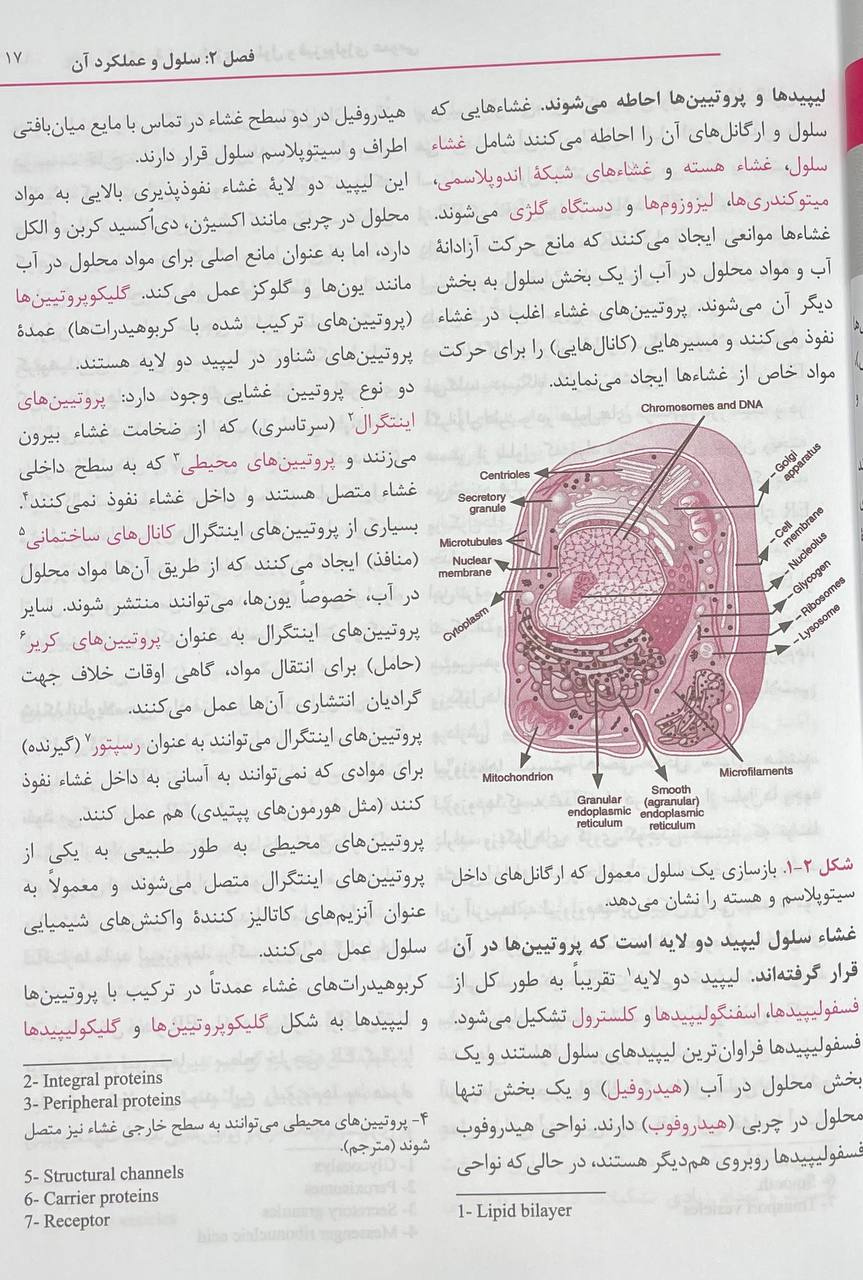 فصل ۲: سلول و عملکرد آن
۱۷
لیپیدها و پروتیین‌ها احاطه می‌شوند. غشاءهایی که
سلول و ارگانل‌های آن را احاطه می‌کنند شامل غشاء
سلول، غشاء هسته و غشاءهای شبکۀ اندوپلاسمی،
میتوکندری‌ها، لیزوزوم‌ها و دستگاه گلژی می‌شوند.
غشاءها موانعی ایجاد می‌کنند که مانع حرکت آزادانۀ
آب و مواد محلول در آب از یک بخش سلول به بخش
دیگر آن می‌شوند. پروتیین‌های غشاء اغلب در غشاء
نفوذ می‌کنند و مسیرهایی (کانال‌هایی) را برای حرکت
مواد خاص از غشاءها ایجاد می‌نمایند.
Chromosomes and DNA
Centrioles
Secretory
granule
Microtubules
Nuclear
membrane
Cytoplasm
Golgi
apparatus
Cell
membrane
Nucleolus
Glycogen
Ribosomes
Lysosome
Mitochondrion
Granular
endoplasmic
reticulum
Smooth
(agranular)
endoplasmic
reticulum
Microfilaments
شکل ۲-۱. بازسازی یک سلول معمول که ارگانل‌های داخل
سیتوپلاسم و هسته را نشان می‌دهد.
غشاء سلول لیپید دو لایه است که پروتیین‌ها در آن
قرار گرفته‌اند. لیپید دو لایه۱ تقریباً به طور کل از
فسفولیپیدها، اسفنگولیپیدها و کلسترول تشکیل می‌شود.
فسفولیپیدها فراوان‌ترین لیپیدهای سلول هستند و یک
بخش محلول در آب (هیدروفیل) و یک بخش تنها
محلول در چربی (هیدروفوب) دارند. نواحی هیدروفوب
فسفولیپیدها روبروی هم‌دیگر هستند، در حالی‌که نواحی
1- Lipid bilayer
هیدروفیل در دو سطح غشاء در تماس با مایع میان‌بافتی
اطراف و سیتوپلاسم سلول قرار دارند.
این لیپید دو لایۀ غشاء نفوذپذیری بالایی به مواد
محلول در چربی مانند اکسیژن، دی‌اُکسید کربن و الکل
دارد، اما به عنوان مانع اصلی برای مواد محلول در آب
مانند یون‌ها و گلوکز عمل می‌کند. گلیکوپروتیین‌ها
(پروتیین‌های ترکیب شده با کربوهیدرات‌ها) عمدۀ
پروتیین‌های شناور در لیپید دو لایه هستند.
دو نوع پروتیین غشایی وجود دارد: پروتیین‌های
اینتگرال۲ (سرتاسری) که از ضخامت غشاء بیرون
می‌زنند و پروتیین‌های محیطی۳ که به سطح داخلی
غشاء متصل هستند و داخل غشاء نفوذ نمی‌کنند۴.
بسیاری از پروتیین‌های اینتگرال کانال‌های ساختمانی۵
(منافذ) ایجاد می‌کنند که از طریق آن‌ها مواد محلول
در آب، خصوصاً یون‌ها، می‌توانند منتشر شوند. سایر
پروتیین‌های اینتگرال به عنوان پروتیین‌های کریر۶
(حامل) برای انتقال مواد، گاهی اوقات خلاف جهت
گرادیان انتشاری آن‌ها عمل می‌کنند.
پروتیین‌های اینتگرال می‌توانند به عنوان رسپتور۷ (گیرنده)
برای موادی که نمی‌توانند به آسانی به داخل غشاء نفوذ
کنند (مثل هورمون‌های پپتیدی) هم عمل کنند.
پروتیین‌های محیطی به طور طبیعی به یکی از
پروتیین‌های اینتگرال متصل می‌شوند و معمولاً به
عنوان آنزیم‌های کاتالیز کنندۀ واکنش‌های شیمیایی
سلول عمل می‌کنند.
کربوهیدرات‌های غشاء عمدتاً در ترکیب با پروتیین‌ها
و لیپیدها به شکل گلیکوپروتیین‌ها و گلیکولیپیدها
2- Integral proteins
3- Peripheral proteins
۴- پروتیین‌های محیطی می‌توانند به سطح خارجی غشاء نیز متصل
شوند (مترجم).
5- Structural channels
6- Carrier proteins
7- Receptor